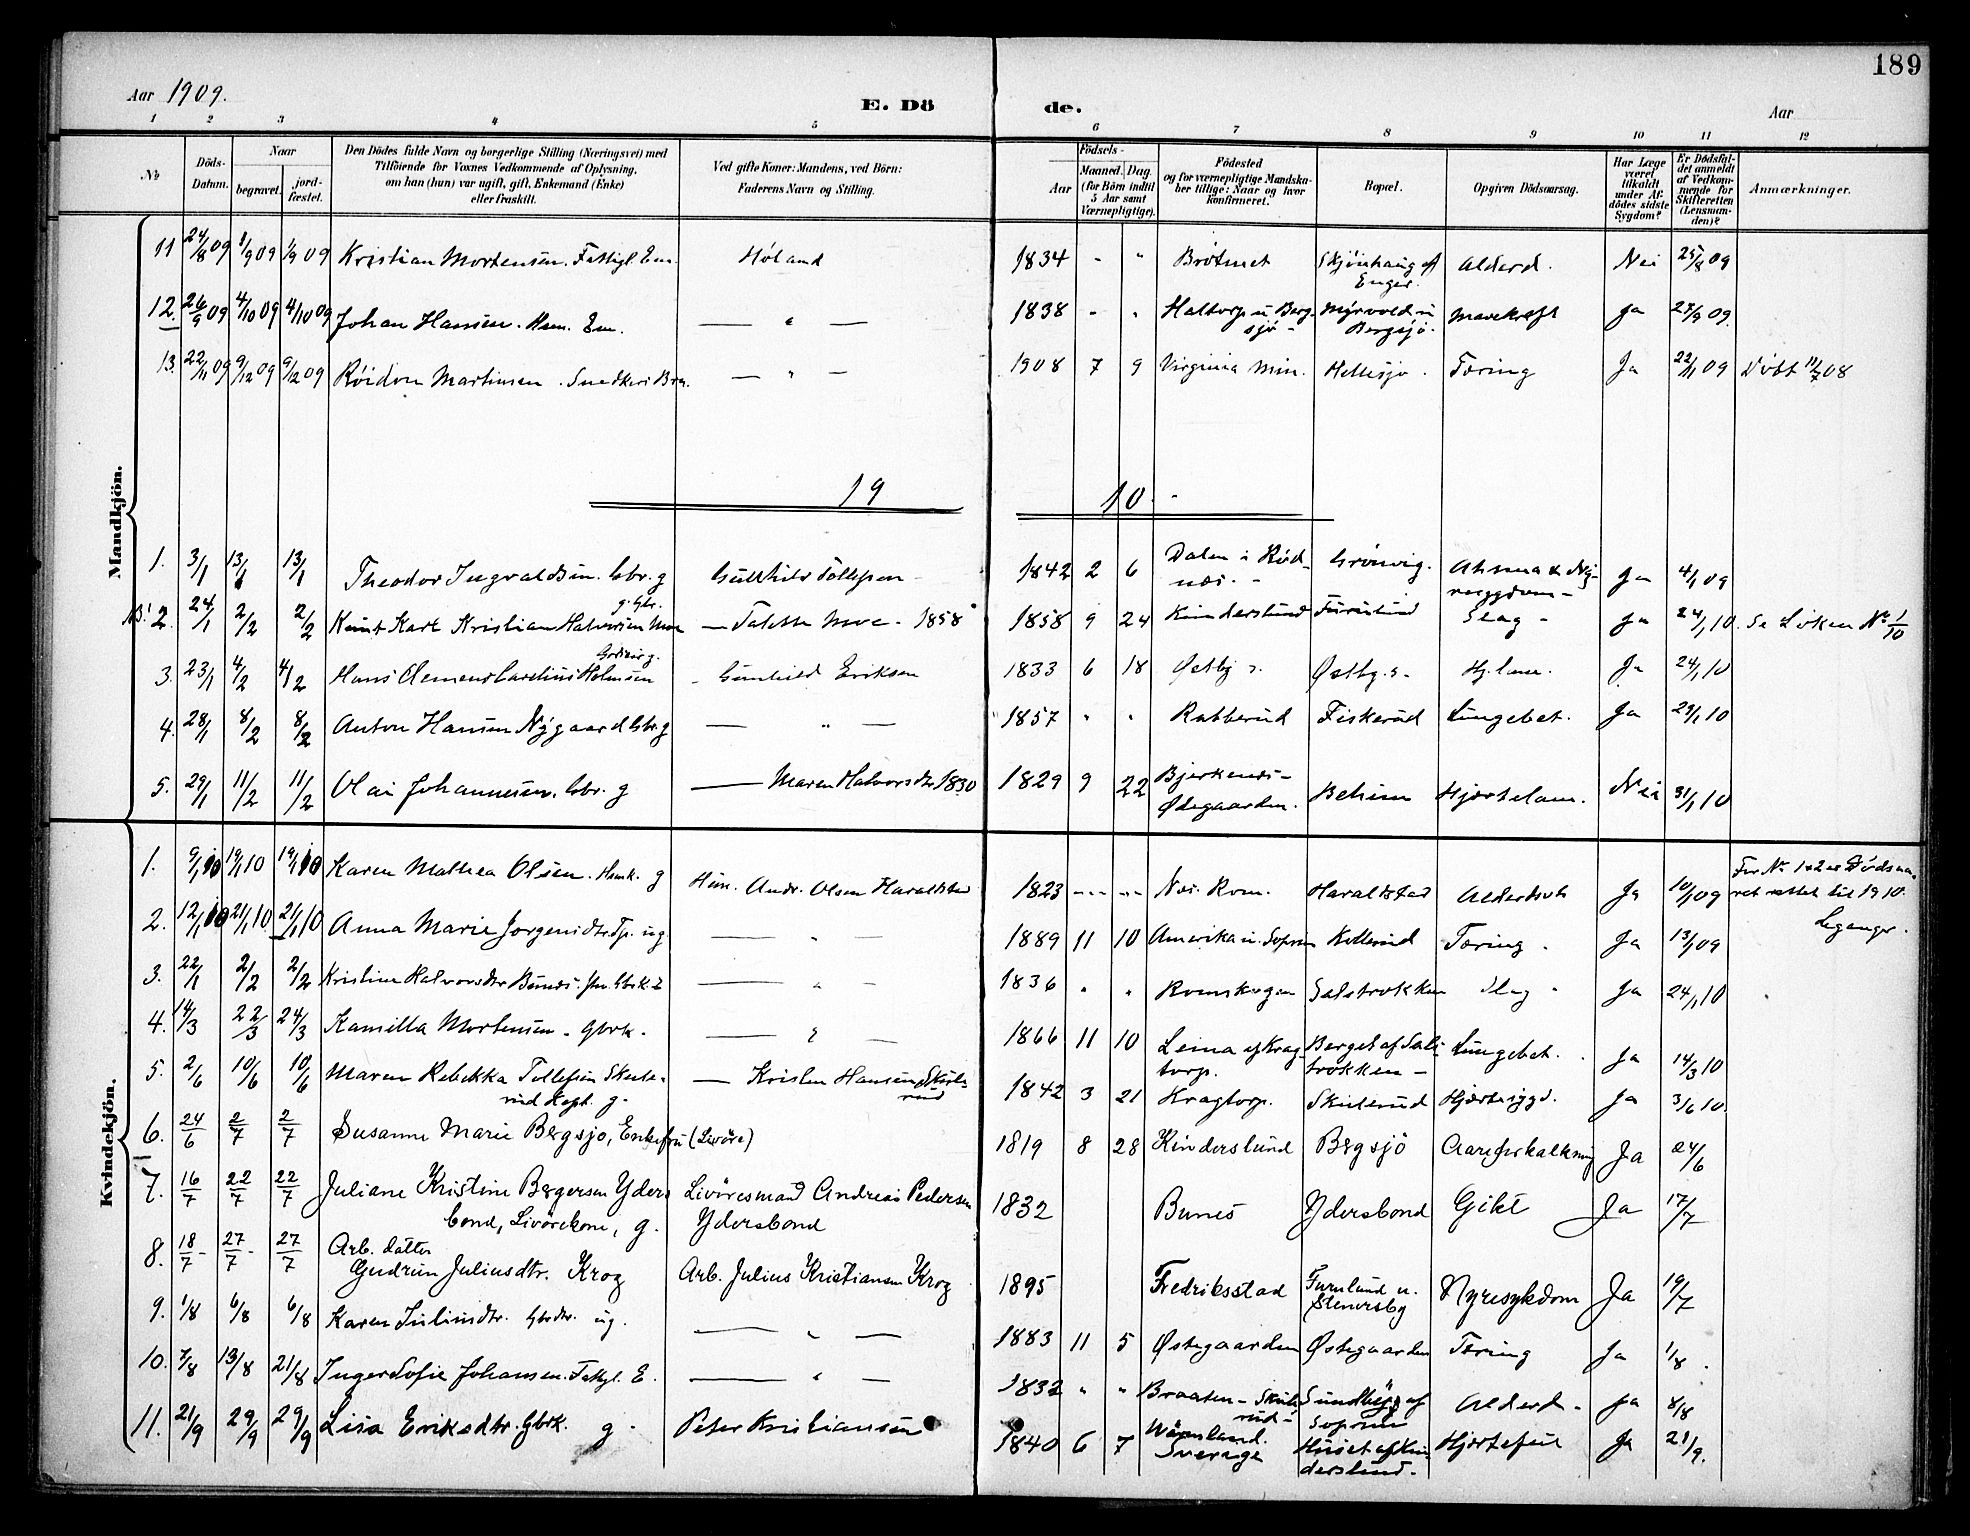 189
Aar 1909.
E. Dö
de.
Aar
1 2 3 4 5 6 7 8 9 10 11 12
No
Döds-Datum.
Naar
begravet.
jord-fæstet.
Den Dödes fulde Navn og borgerlige Stilling (Næringsvei) med
Tilföiende for Voxnes Vedkommende af Oplysning,
om han (hun) var ugift, gift, Enkemand (Enke)
eller fraskilt.
Ved gifte Koner: Mandens, ved Börn:
Faderens Navn og Stilling.
Födsels-
Aar
Maaned. Dag.
(for Börn indtil
5 Aar samt
Værnepligtige).
Födested
og for værnepligtige Mandska-
ber tillige: Naar og hvor
konfirmeret.
Bopæl.
Opgiven Dödsaarsag.
Har Læge
været
tilkaldt
under Af-
dödes sidste
Sygdom?
Er Dödsfal-
det anmeldt
af Vedkom-
mende for
Skifteretten
(Lensman-
den)?
Anmærkninger.
Mandkjön.
11 24/8 09 1/9 09 1/9 09 Kristian Mortensen. Fattigl. Em. Höland 1834 - " Skjönhaug af Enger. Alderd. Nei 25/8 09
12. 26/9 09 4/10 09 4/10 09 Johan Hansen. Em. — " — 1838 - " Haltorp u. Berg-
sjö - Myrvold u Bergsjö. Mavekræft Ja 27/9 09.
13. 22/11 09 9/12 09 9/12 09 Martinsen. — " — 1908 7 9 Virginia Min. Hellesjö. Tæring Ja 22/11 09 Döbt 11/7 08
19 10.
1. 3/1 13/1 13/1 Theodor Ingvaldsen. Gbr. g Tollefsen 1842 2 6 Dalen i Röd-
næs. - Grönvig. Ja 4/1 09
2. 24/1 2/2 2/2 Karl Kristian Halvorsen g. Gbr. — Moe - 1858 1858 9 24 Kinderslund Furulund Slag - Ja 24/1 10. Se Löken No 1/10
3. 23/1 4/2 4/2 Hans Clemens Holmsen Gunhild Eriksen 1833 6 18 Østby s. Østby s. Hj. lam. Ja 24/1 10
4. 28/1 8/2 8/2 Anton Hansen Nygaard Gbr. g — " — 1857 " " Rubberud Fiskerud Lungebet. Ja 29/1 10
5. 29/1 11/2 11/2 Olai Johannesen. Gbr. g — Maren Halvorsdtr 1830 1829 9 22 Bjerkenæs-
Ödegaarden. Hjertelam. Nei 31/1 10
Kvindekjön.
1. 9/1 10 19/1 10 19/1 10 Karen Mathea Olsen. g Andr. Olsen Haraldstad 1823 Næs. Rom. Haraldstad Ja 10/1 09 For No 1 & 2 er Dödsaa-
ret rettet til 1910.
2. 12/1 10 21/1 10 21/1 10 Anna Marie Jörgensdtr. ug — " — 1889 11 10 Amerika u. Soprim Kollerud Tæring. Ja 13/1 09 Leganger.
3. 22/1 2/2 2/2 Kristine Halvorsdtr — " — 1836 " " Romskogen Salstrokken Slag " Ja 24/1 10
4. 14/3 22/3 24/3 Kamilla Mortensen - Gbrk. — " — 1866 11 10 Leina af Krag-
torp. Berget af Sals-
trokken - Lungebet. Ja 14/3 10
5. 2/6 10/6 10/6 Maren Rebekka Tollefsen Skule-
rud g. — Kristen Hansen Skule-
rud 1842 3 21 Kragtorp. Skulerud Hjertesygd. Ja 3/6 10.
6. 24/6 2/7 2/7 Susanne Marie Bergsjö, Enkefru (Livöre) 1819 8 28 Kinderslund Bergsjö Aareforkalkning Ja 24/6
7. 16/7 22/7 22/7 Juliane Kristine Bergersen Yders-
bond, Livörekone, g. Livöresmand Andreas Pedersen
Ydersbond 1832 Bunes Ydersbond Gikt Ja 17/7
8. 18/7 - 27/7 - 27/7 Arb. datter
Gudrun Juliusdtr. Krog Arb. Julius Kristiansen Krog 1895 Fredriksstad Furulund u.
Stenersby Nyresykdom Ja 19/7
9. 1/8 6/8 6/8 Karen Julinsdtr. Gbrdtr. ug. — " — 1883 11 5 Østegaarden Østegaarden Tæring Ja 1/8.
10. 7/8 13/8 21/8 Inger Sofie Johansen. Fattgl. E. — " — 1832 " " Braaten - Skule-
rud - Sundbyg af
Soprim Alderd. Ja 8/8
11. 21/9 29/9 29/9 Lisa Eriksdtr. Gbrk. g. Peter Kristiansen 1840 6 7 Wärmland.
Sverage Huset af Kin-
derslund. Hjertefeil Ja 21/9.